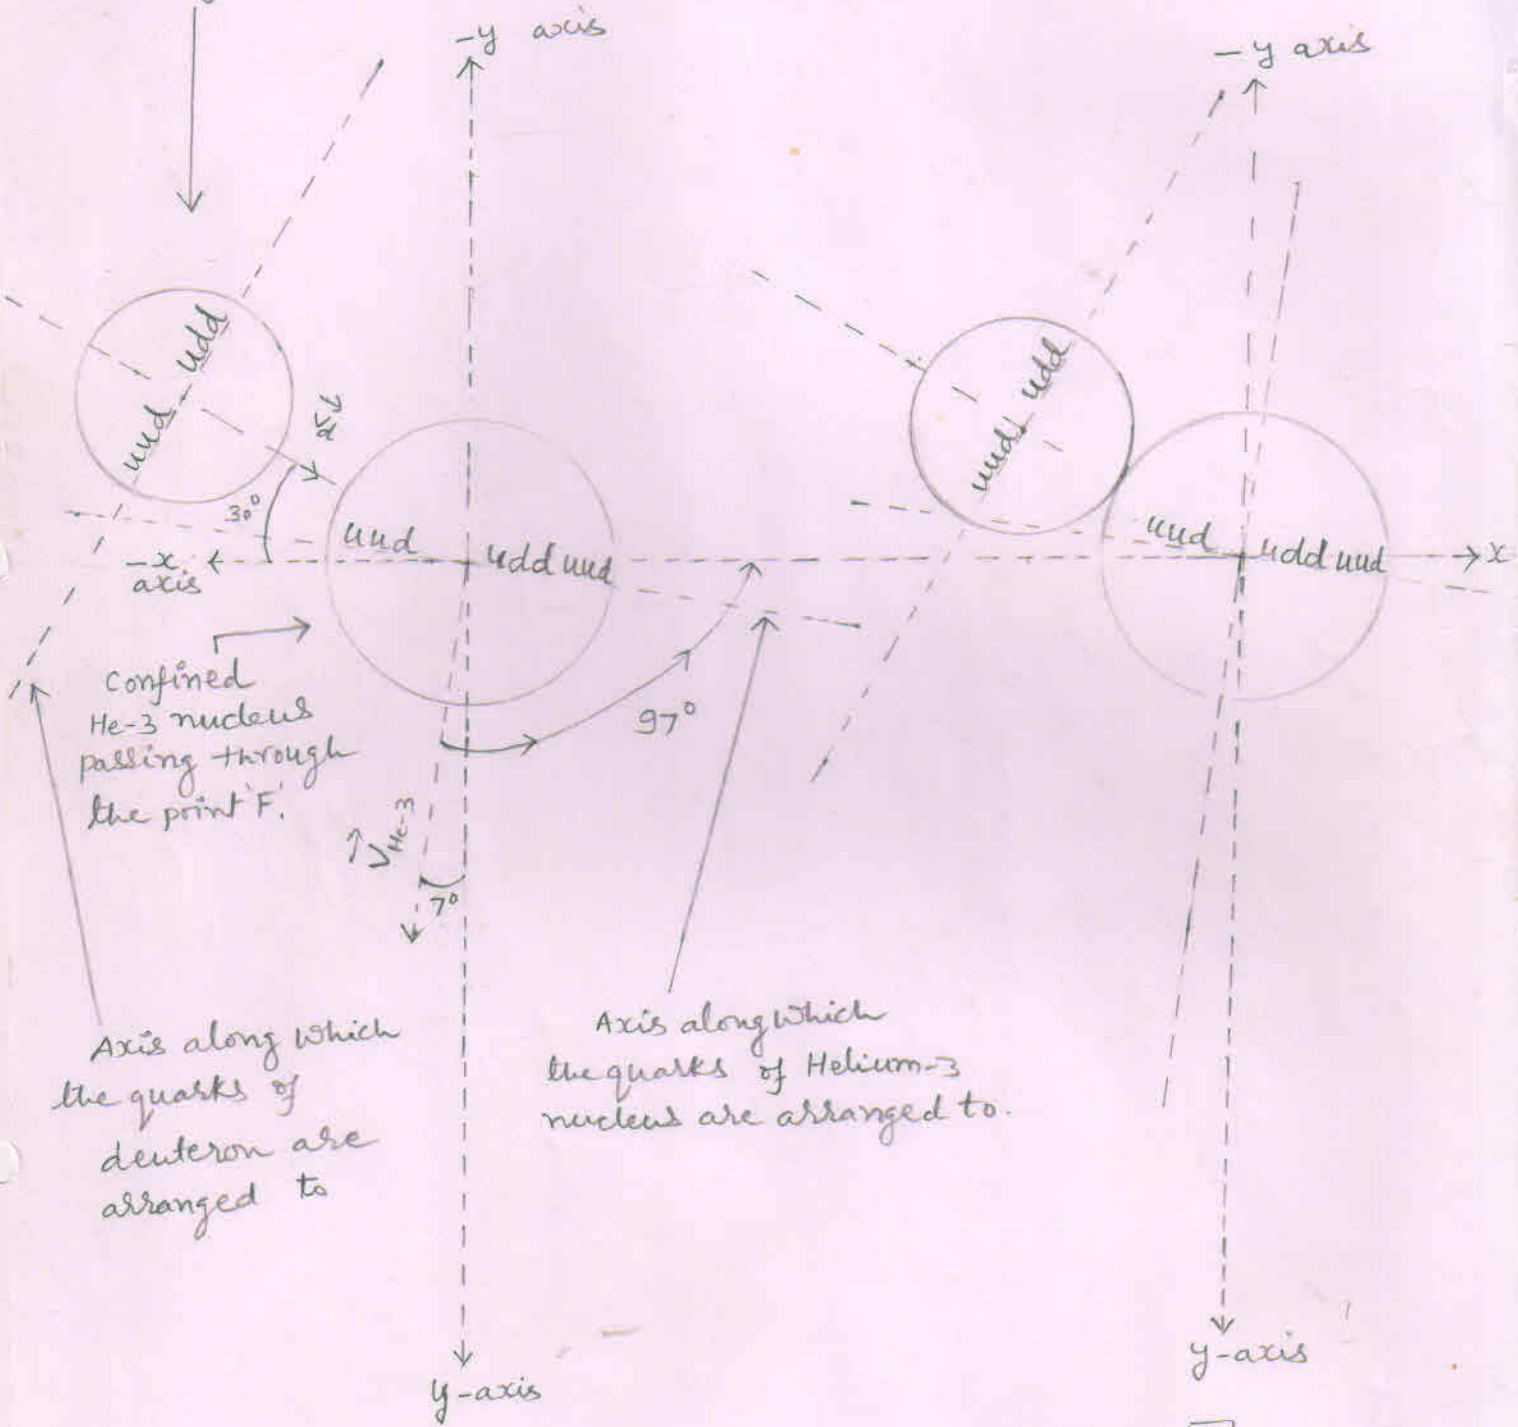 -y axis
-y axis
udd
uud
30°
-x
axis
uud
udd uud
udd
uud
uud
udd uud
x
97°
Confined
He-3 nucleus
passing through
the point 'F'.
V He-3
7°
Axis along which
the quarks of
deuteron are
arranged to
Axis along which
the quarks of Helium-3
nucleus are arranged to.
y-axis
y-axis